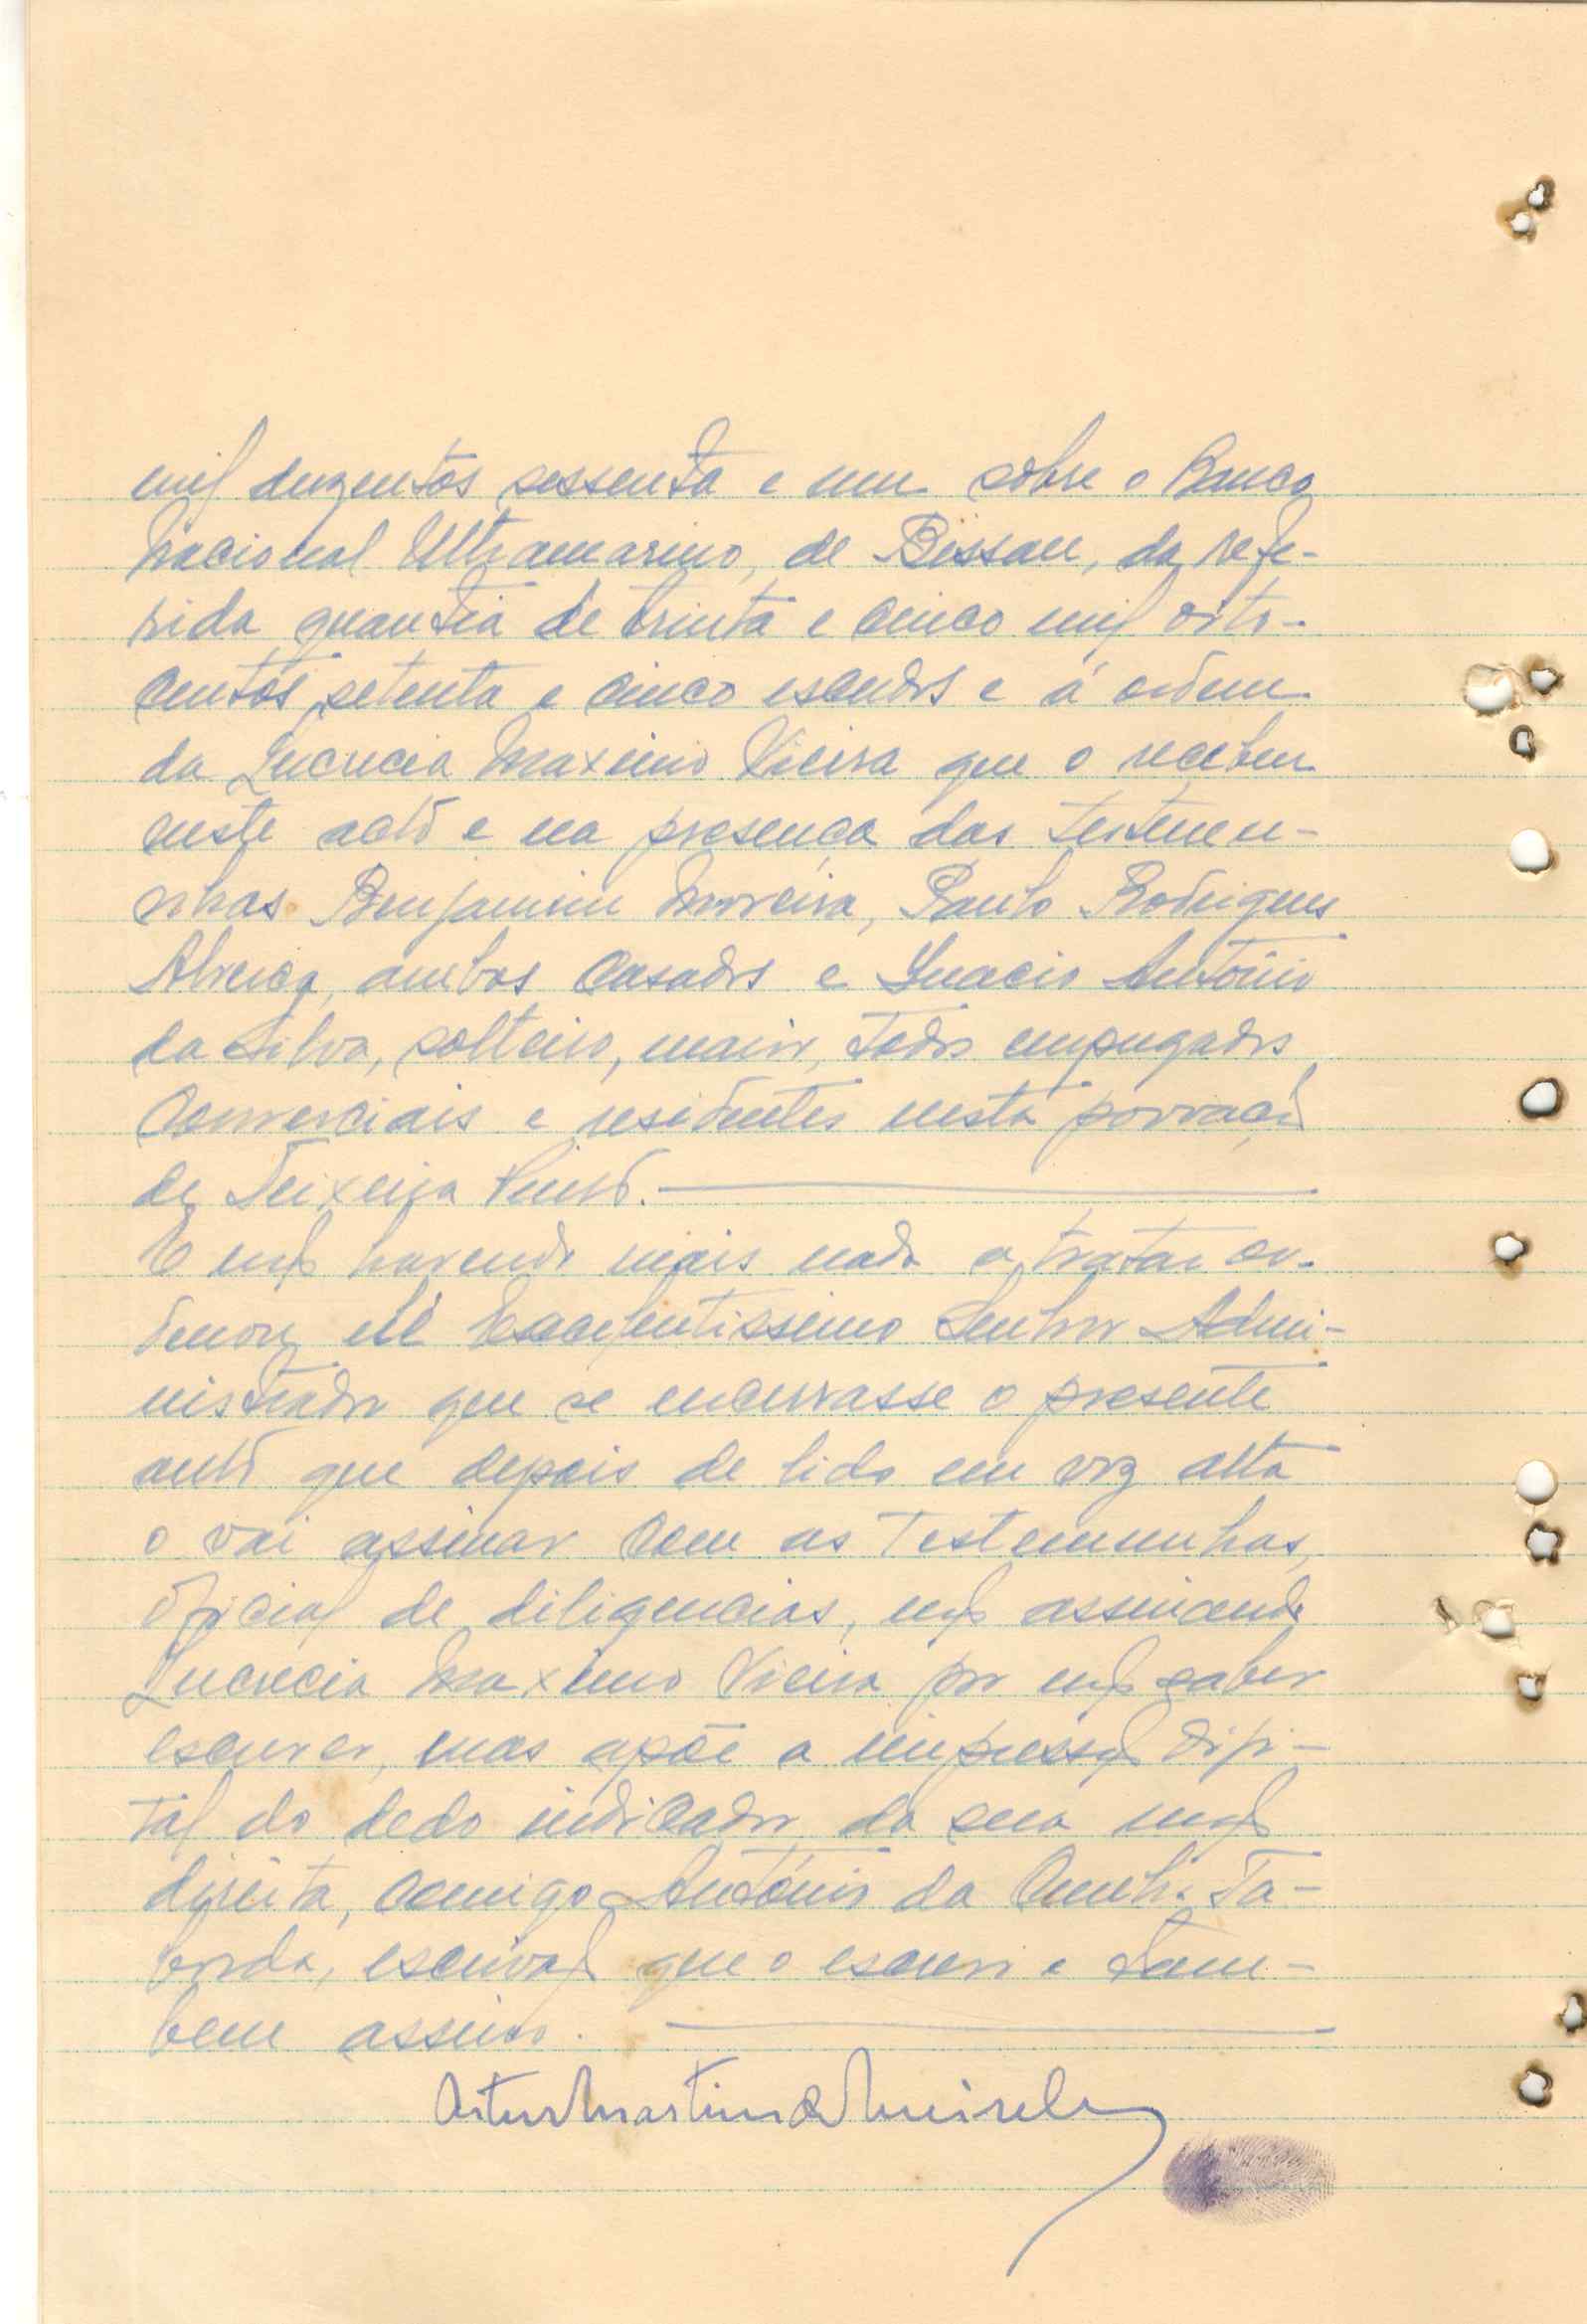 mil duzentos sessenta e um sobre o Banco
Nacional Ultramarino, de Bissau, da refe-
rida quantia de trinta e cinco mil oito-
centos setenta e cinco escudos e á ordem
da Lucrecia Maximo Vieira que o recebeu
neste acto e na presença das testemu-
nhas Benjamim Moreira, Paulo Rodrigues
ambos casados e Inacio António
da Silva, solteiro, maior, todos empregados
comerciais e residentes nesta povoação
de Teixeira Pinto.
E não havendo mais nada a tratar or-
denou ele Excelentissimo Senhor Admi-
nistrador que se encerrasse o presente
auto que depois de lido em voz alta
o vai assinar com as testemunhas,
oficial de diligencias, não assinando
Lucrecia Maximo Vieira por não saber
escrever, mas apõe a impressão digi-
tal do dedo indicador da sua mão
direita, comigo António da Cunha Ta-
borda, escrivão que o escrevi e tam-
bem assino.
Artur Martins de Meireles